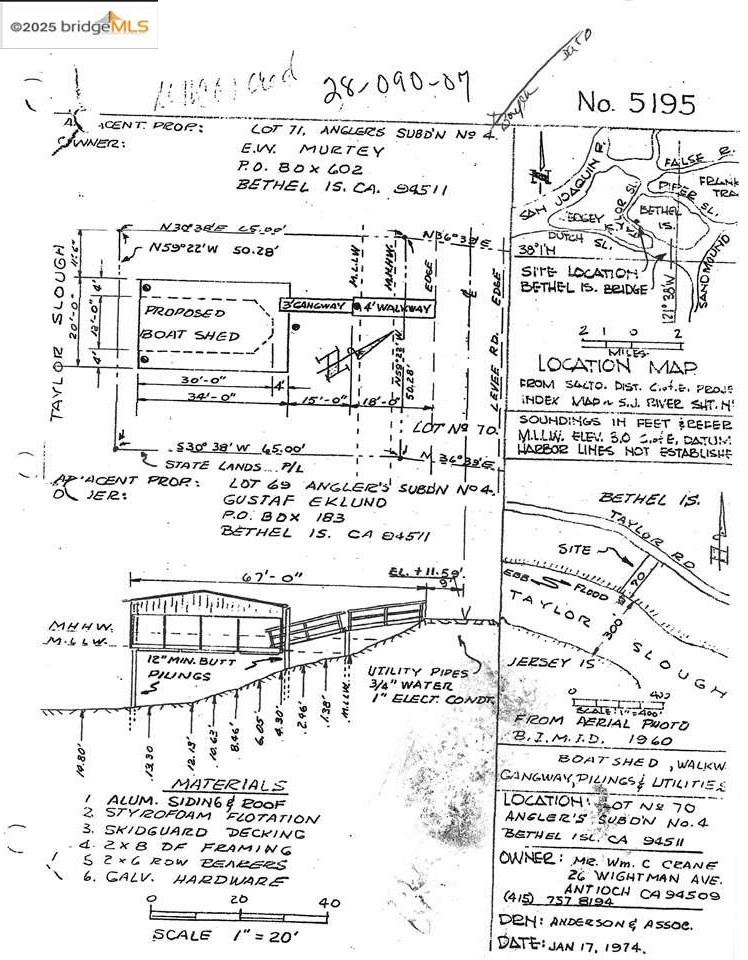 ©2025 bridgeMLS
28-090-07
No. 5195
ACENT. PROP:
OWNER:
LOT 71, ANGLERS SUBD'N Nº 4.
E.W. MURTEY
P.O. BOX 602
BETHEL IS. CA. 94511
N30°38'E 65.00'
N59°22'W 50.28'
N36°38'E
TAYLOR SLOUGH
11'-6"
20'-0"
4'
12'-0"
4'
PROPOSED
BOAT SHED
3' GANGWAY
4' WALKWAY
M.L.L.W
M.H.H.W.
EDGE
LEVEE RD. EDGE
N59°22'W
50.28'
30'-0"
4'
34'-0"
15'-0"
18'-0"
LOT Nº 70
S30°38'W 65.00'
N 36°38'E
STATE LANDS P/L
ADJACENT PROP:
OWNER:
LOT 69 ANGLER'S SUBD'N Nº4.
GUSTAF EKLUND
P.O. BOX 183
BETHEL IS. CA 94511
67'-0"
EL. +11.59'
9'
M.H.H.W.
M.L.L.W.
12" MIN. BUTT
PILINGS
UTILITY PIPES
3/4" WATER
1" ELECT. CONDT.
14.80'
13.30
12.13'
10.63'
8.46'
6.05'
4.30'
2.46'
1.38'
M.L.L.W.
MATERIALS
1 ALUM. SIDING & ROOF
2 STYROFOAM FLOTATION
3. SKIDGUARD DECKING
4. 2×8 DF FRAMING
5 2×6 RDW BEARERS
6. GALV. HARDWARE
0 20 40
SCALE 1"=20'
SAN JOAQUIN R.
FALSE R.
PIPER SL.
FRANK
TRA
TAYLOR SL.
BETHEL
IS.
DUTCH SL.
SAND MOUND
38°1'N
121°38'W
SITE LOCATION
BETHEL IS. BRIDGE
2 1 0 2
MILES
LOCATION MAP
FROM SACTO. DIST. C.of E. PROJE
INDEX MAP S.J. RIVER SHT. Nº
SOUNDINGS IN FEET & REFER
M.L.L.W. ELEV. 3.0 C.of E. DATUM
HARBOR LINES NOT ESTABLISHE
BETHEL IS.
TAYLOR RD
SITE
70
EBB FLOOD
TAYLOR SLOUGH
300
JERSEY IS
0 400
SCALE: 1"=400'
FROM AERIAL PHOTO
B.I.M.I.D. 1960
BOAT SHED, WALKW
GANGWAY, PILINGS & UTILITIES
LOCATION: LOT Nº 70
ANGLER'S SUBD'N No. 4
BETHEL ISL. CA 94511
OWNER: MR. WM. C CRANE
26 WIGHTMAN AVE.
ANTIOCH CA 94509
(415) 757 8194
DRN: ANDERSON & ASSOC.
DATE: JAN 17, 1974.